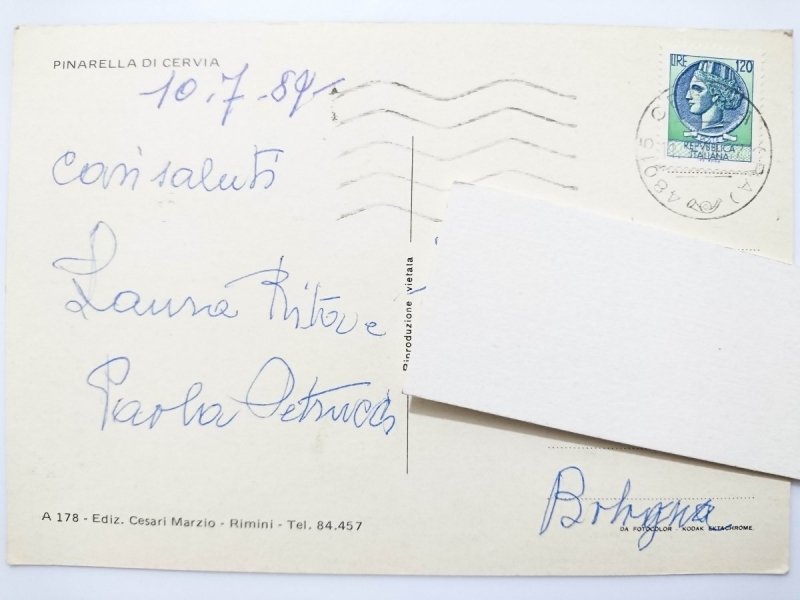 PINARELLA DI CERVIA
10.7.84
cari saluti
Laura Rita e
Paola Petrucci
A 178 - Ediz. Cesari Marzio - Rimini - Tel. 84.457
Riproduzione vietata
LIRE 120
REPVBBLICA
ITALIANA
48015 C
(RA)
Bologna
DA FOTOCOLOR - KODAK EKTACHROME